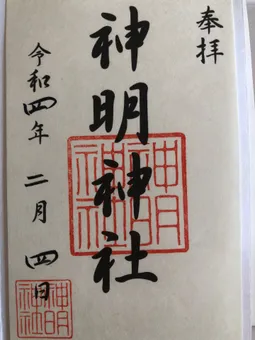 奉拝
神明神社
令和四年二月四日
神明
神社
神明
神社